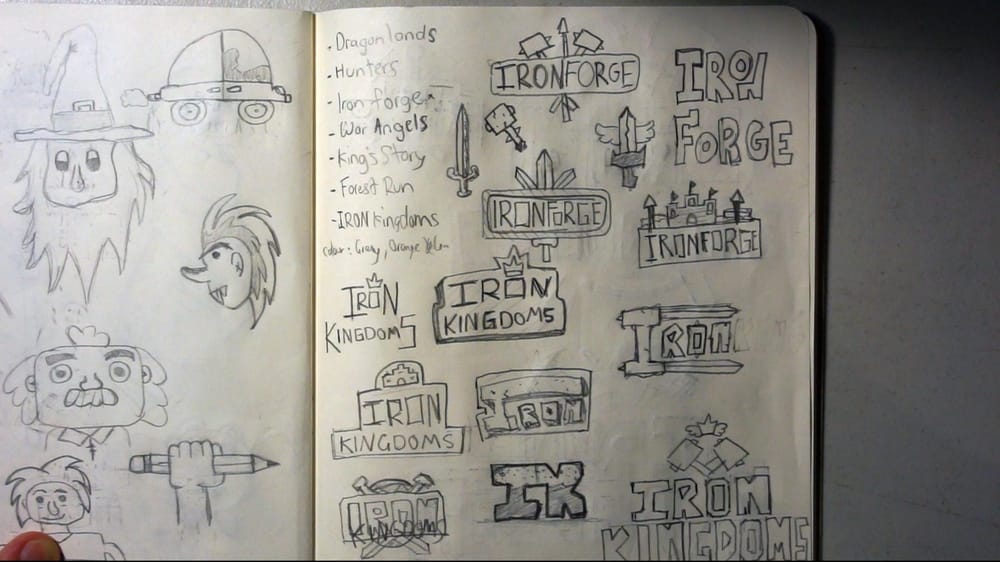 . Dragonlands
- Hunters
- Iron forge
- War Angels
- King's Story
- Forest Run
- IRON Kingdoms
colour: Gray, Orange
IRON
KINGDOMS
IRONFORGE
IRON
FORGE
IRONFORGE
IRONFORGE
IRON
KINGDOMS
IRON
IRON
KINGDOMS
IRON
IK
IRON
KINGDOMS
IRON
KINGDOMS